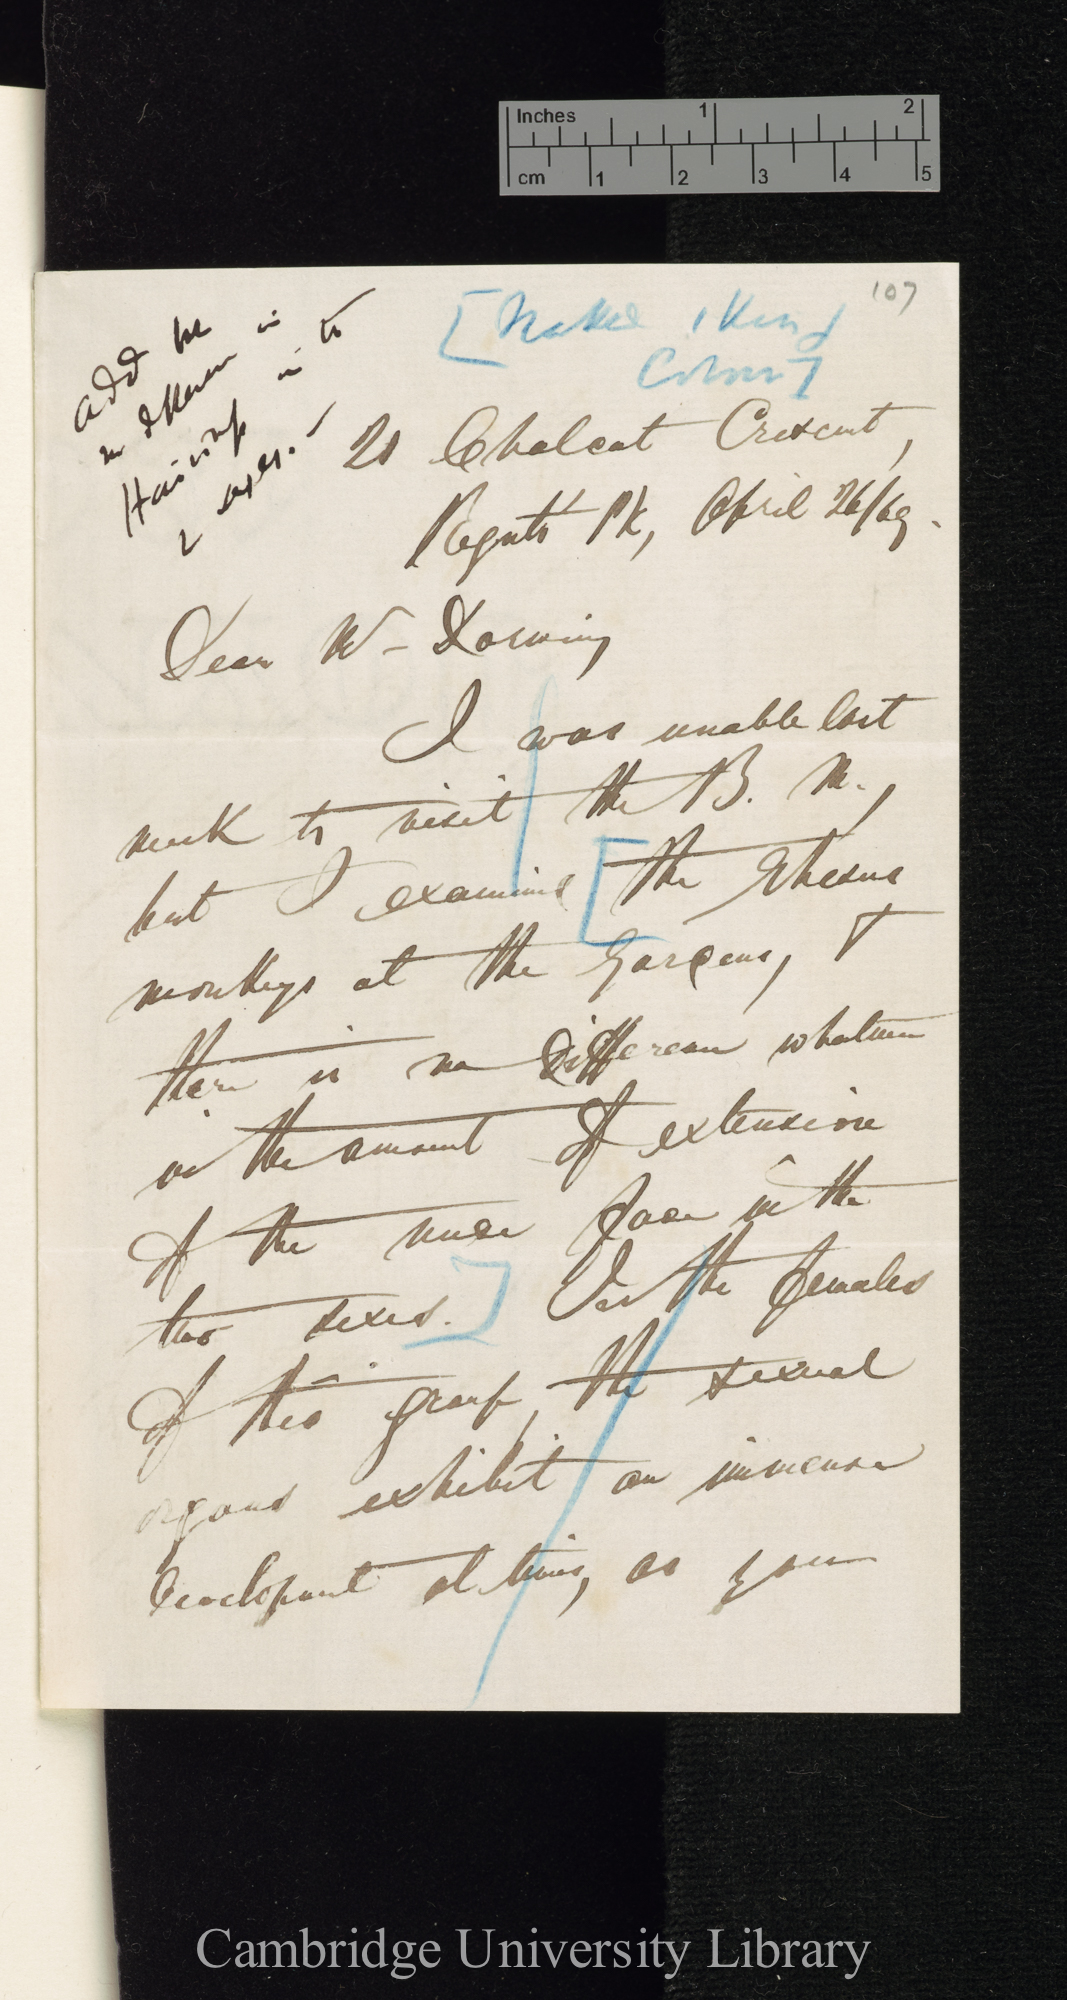 107
[Naked skin
Colour]
add he
no difference in
Hairiness in to
2 sexes.
20 Chalcot Crescent,
Regents Pk, April 26/69.
Dear Mr Darwin
I was unable last
week to visit the B. M.,
but I examined [the Rhesus
monkeys at the Gardens, &
there is no difference whatever
in the amount of extension
of the nude face in the
two sexes.] In the females
of this group, the sexual
organs exhibit an immense
development at times, as you
Inches 1 2
cm 1 2 3 4 5
Cambridge University Library